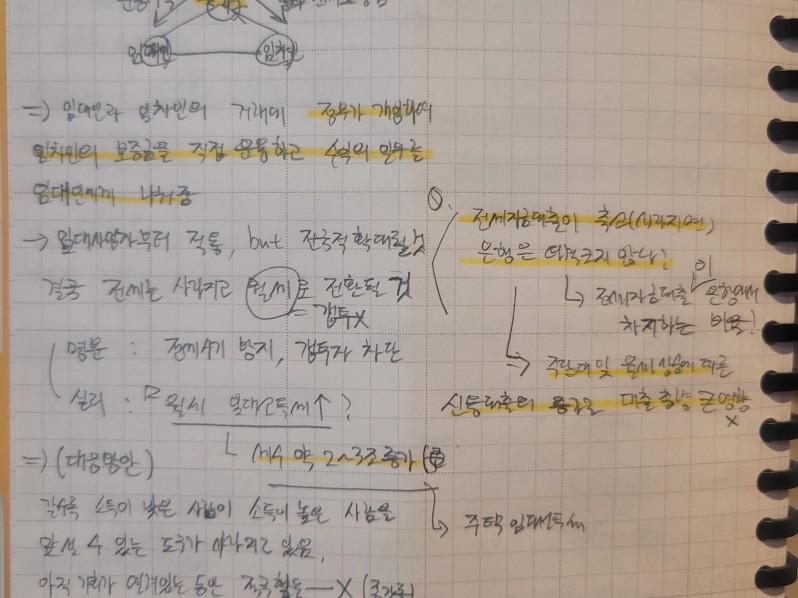 임대인 임차인
=> 임대인과 임차인의 거래에 정부가 개입하여
임차인의 보증금을 직접 운용하고 수익의 일부를
임대인에게 나눠줌
→ 임대사업자부터 적용, but 전국적 확대될 것
결국 전세는 사라지고 월세로 전환될 것
= 갭투X
명분 : 전세사기 방지, 갭투자 차단
실리 : 월세 임대소득세↑?
세수 약 2~3조 증가
=> (대응방안)
갈수록 소득이 낮은 사람이 소득이 높은 사람을
앞설 수 있는 도구가 사라지고 있음.
아직 기회가 열려있는 동안 적극활용
Q. 전세자금대출이 축소(사라지면)
은행은 타격크지 않나?
전세자금대출이 은행에서
차지하는 비율!
=> 주담대 및 월세 상승에 따른
신용대출의 대출총량 큰영향
X
주택임대소득세